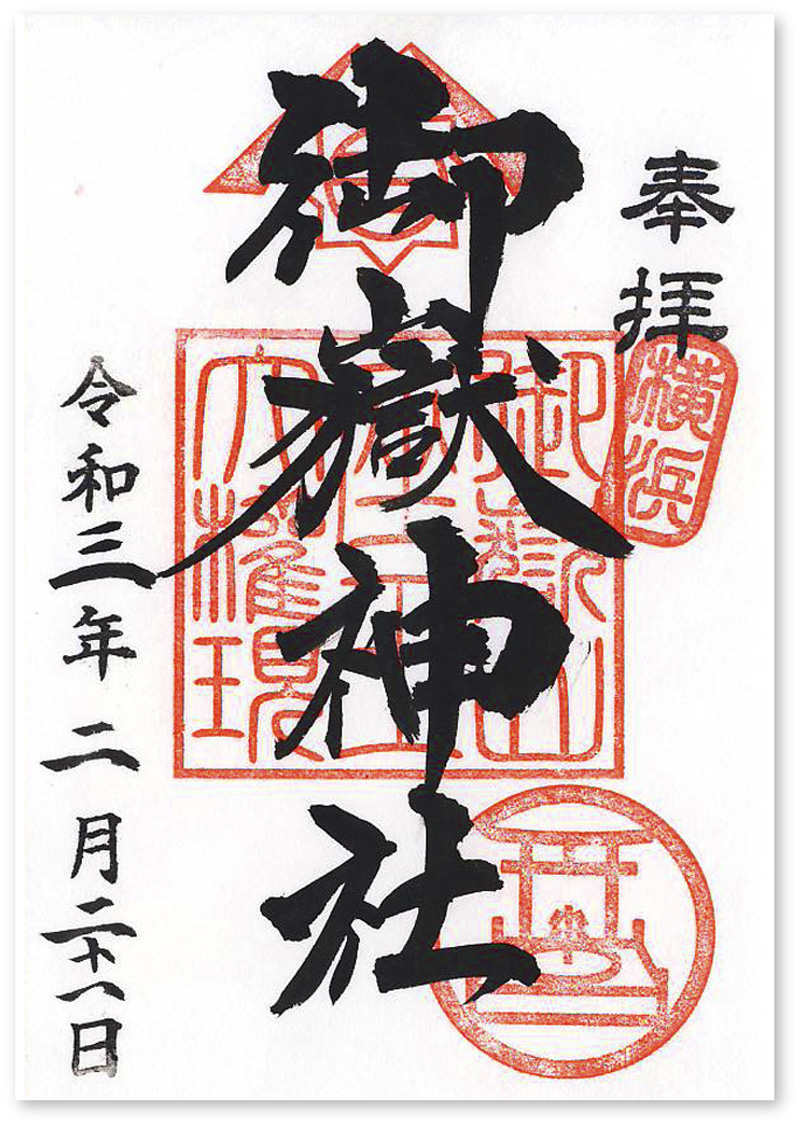 奉拝
横浜
御嶽神社
御嶽山
大權現
令和三年二月二十八日